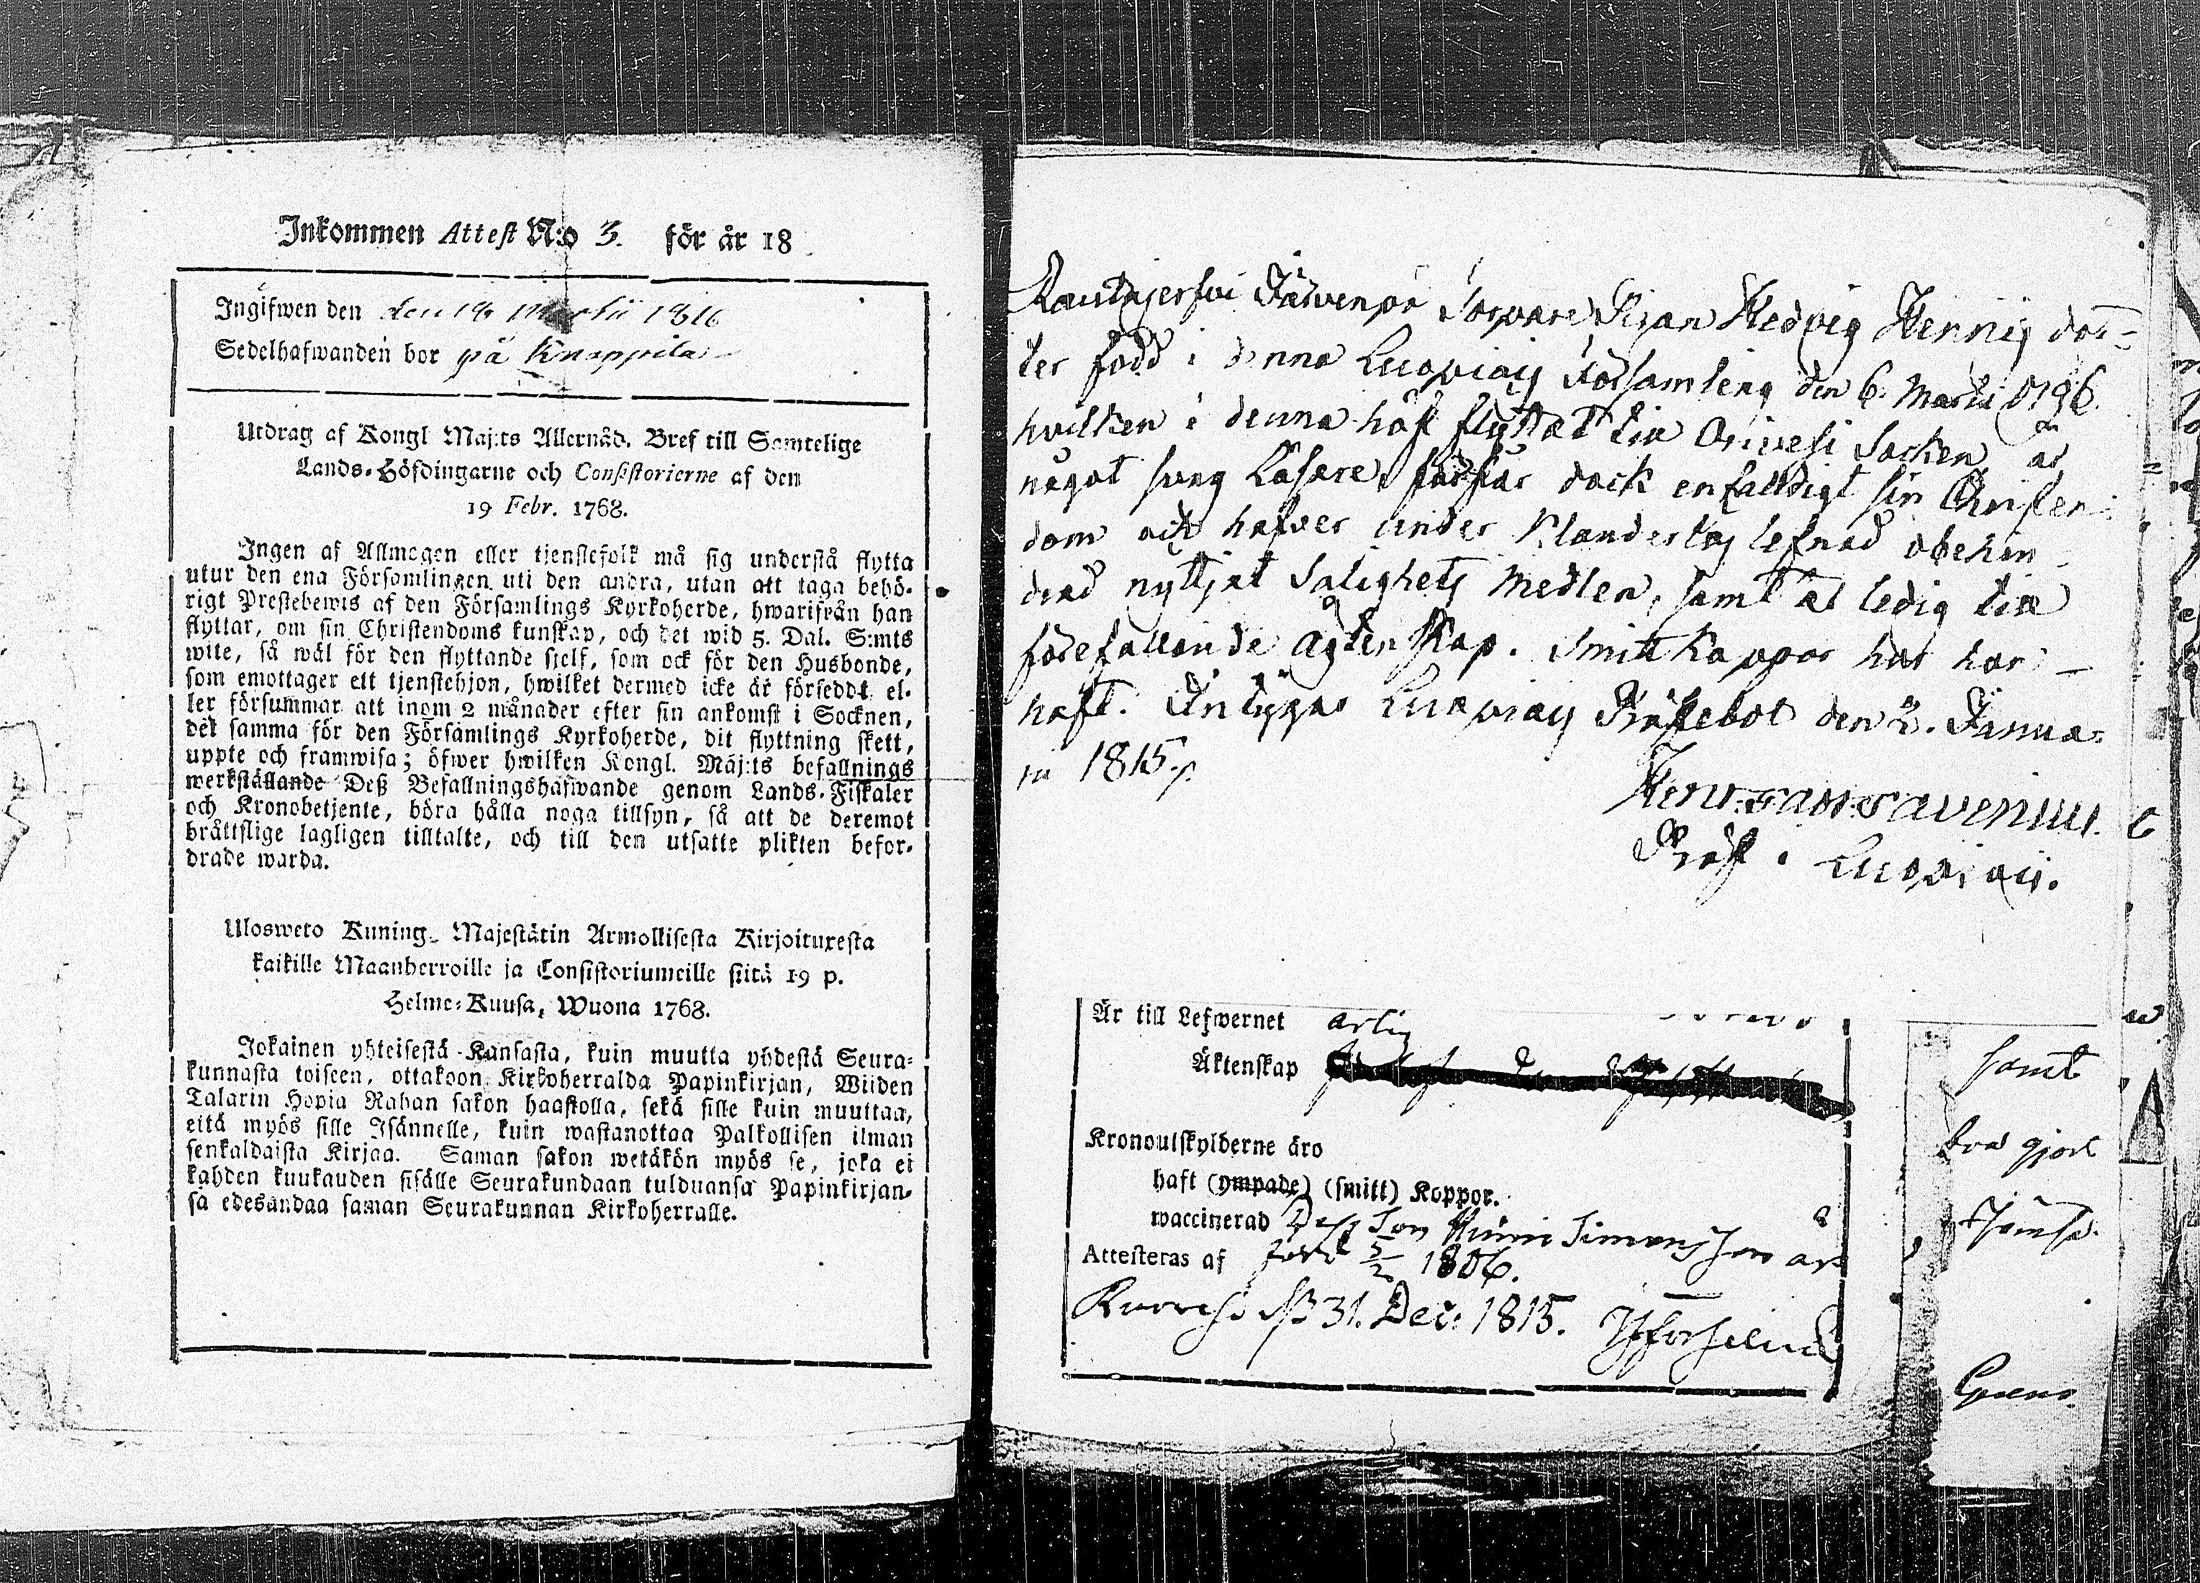 Inkommen Attest N:o 3. för år 18
Ingifwen den den 18 Martii 1816
Sedelhafwanden bor på Knappila
Utdrag af Kongl Maj:ts Allernåd. Bref till Samtelige
Lands-Höfdingarne och Consistorierne af den
19 Febr. 1768.
Ingen af Allmogen eller tjenstefolk må sig understå flytta
utur den ena Församlingen uti den andra, utan att taga behö-
rigt Prestebewis af den Församlings Kyrkoherde, hwarifrån han
flyttar, om sin Christendoms kunskap, och det wid 5. Dal. S:mts
wite, så wäl för den flyttande sjelf, som ock för den Husbonde,
som emottager ett tjenstehjon, hwilket dermed icke är förseddt el-
ler försummar att inom 2 månader efter sin ankomst i Socknen,
det samma för den Församlings Kyrkoherde, dit flyttning skett,
uppte och framwisa; öfwer hwilken Kongl. Maj:ts befallnings
werkställande Deß Befallningshafwande genom Lands-Fiskaler
och Kronobetjente, böra hålla noga tillsyn, så att de deremot
bråttslige lagligen tilltalte, och till den utsatte plikten befor-
drade warda.
Ulosweto Kuning. Majestätin Armollisesta Kirjoituxesta
kaikille Maanherroille ja Consistoriumeille siitä 19 p.
Helme-Kuusa, Wuona 1768.
Jokainen yhteisestä Kansasta, kuin muutta yhdestä Seura-
kunnasta toiseen, ottakoon Kirkoherralda Papinkirjan, Wiiden
Talarin Hopia Rahan sakon haastolla, sekä sille kuin muuttaa,
eitä myös sille Isännelle, kuin wastanottaa Palkollisen ilman
senkaldaista Kirjaa. Saman sakon wetäkön myös se, joka ei
kahden kuukauden sisälle Seurakundaan tulduansa Papinkirjan-
sa edesandaa saman Seurakunnan Kirkoherralle.
Rautajerfvi Torpare Pigan Hedvig Hennis dot-
ter född i denna Luopiois Församling den 6. Martii 1796.
hvilken i denna höst flyttat till Orivesi Socken är
något svag Läsare, förstår dock enfalldigt sin Christen-
dom och hafver under Klanderlös lefnad obehin-
drad nyttjat Salighets Medlen, samt är ledig till
förefallande Ägtenskap. Smittkoppor har hon
haft. Intygas Luopiois Prästebol den 2. Janua-
rii 1815.
Präst i Luopiois.
Är till Lefwernet ärlig
Äktenskap
Kronoutskylderne äro
haft (ympade) (smitt) Koppor.
waccinerad Dess Son Simonsson är
Attesteras af född 5/2 1806.
31. Dec. 1815.
samt
gjort